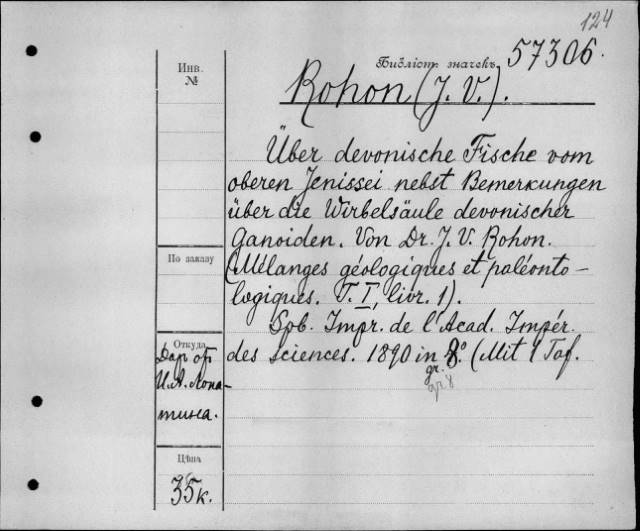 124
Библіот. значекъ 57306.
Инв.
№
Rohon (J. V.).
Über devonische Fische vom
oberen Jenissei nebst Bemerkungen
über die Wirbelsäule devonischer
Ganoiden. Von Dr. J. V. Rohon.
(Mélanges géologiques et paléonto-
logiques. T. I, livr. 1).
Spb. Impr. de l'Acad. Impér.
des sciences. 1890 in 8º (Mit 1 Taf.
gr.
gr 8
По заказу
Откуда
Даръ отъ
И. А. Лопа-
тина.
Цѣна
35 к.